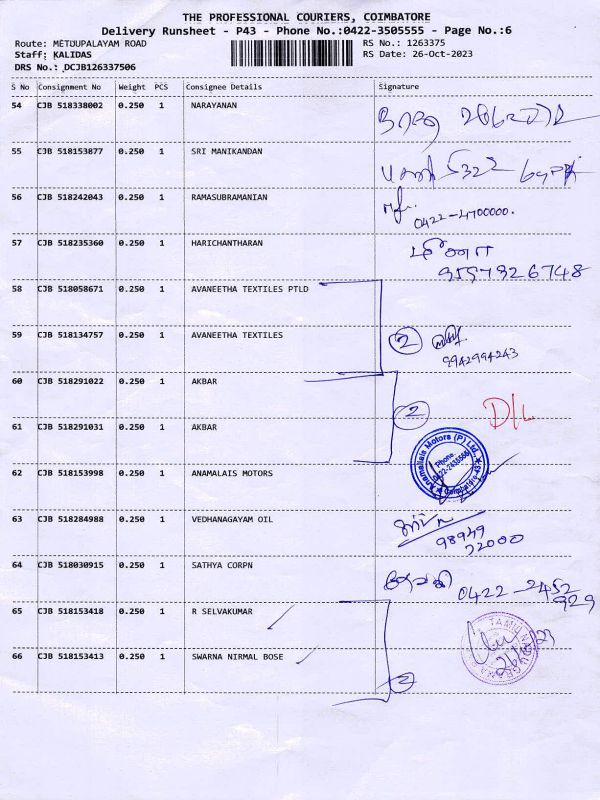 THE PROFESSIONAL COURIERS, COIMBATORE
Delivery Runsheet - P43 - Phone No.:0422-3505555 - Page No.:6
Route: METUUPALAYAM ROAD
RS No.: 1263375
Staff: KALIDAS
RS Date: 26-Oct-2023
DRS No.: DCJB126337506
S No Consignment No Weight PCS Consignee Details Signature
54 CJB 518338002 0.250 1 NARAYANAN
55 CJB 518153877 0.250 1 SRI MANIKANDAN
56 CJB 518242043 0.250 1 RAMASUBRAMANIAN
0422-4700000.
57 CJB 518235360 0.250 1 HARICHANTHARAN
மீனா
9597926748
58 CJB 518058671 0.250 1 AVANEETHA TEXTILES PTLD
59 CJB 518134757 0.250 1 AVANEETHA TEXTILES 2
9942994243
60 CJB 518291022 0.250 1 AKBAR
2 D/L
61 CJB 518291031 0.250 1 AKBAR
Anamallais Motors (P) Ltd.
Phone:
0422-2435555
62 CJB 518153998 0.250 1 ANAMALAIS MOTORS
63 CJB 518284988 0.250 1 VEDHANAGAYAM OIL
98949
72000
64 CJB 518030915 0.250 1 SATHYA CORPN
0422-2452
929
65 CJB 518153418 0.250 1 R SELVAKUMAR
TAMIL NADU GRAMA
66 CJB 518153413 0.250 1 SWARNA NIRMAL BOSE
2